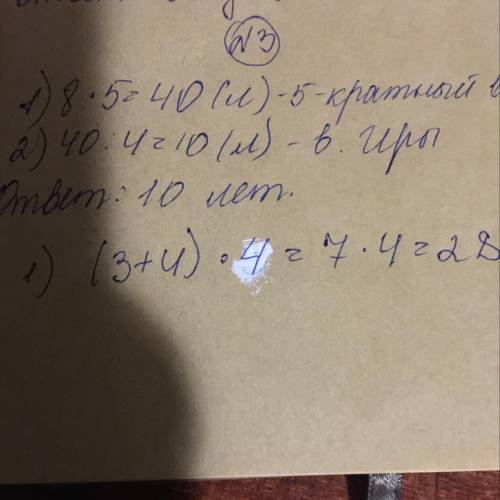 №3
1) 8·5=40 (л) - 5-кратный в
2) 40:4=10 (л) - в. Иры
Ответ: 10 лет.
1) (3+4)·4=7·4=28